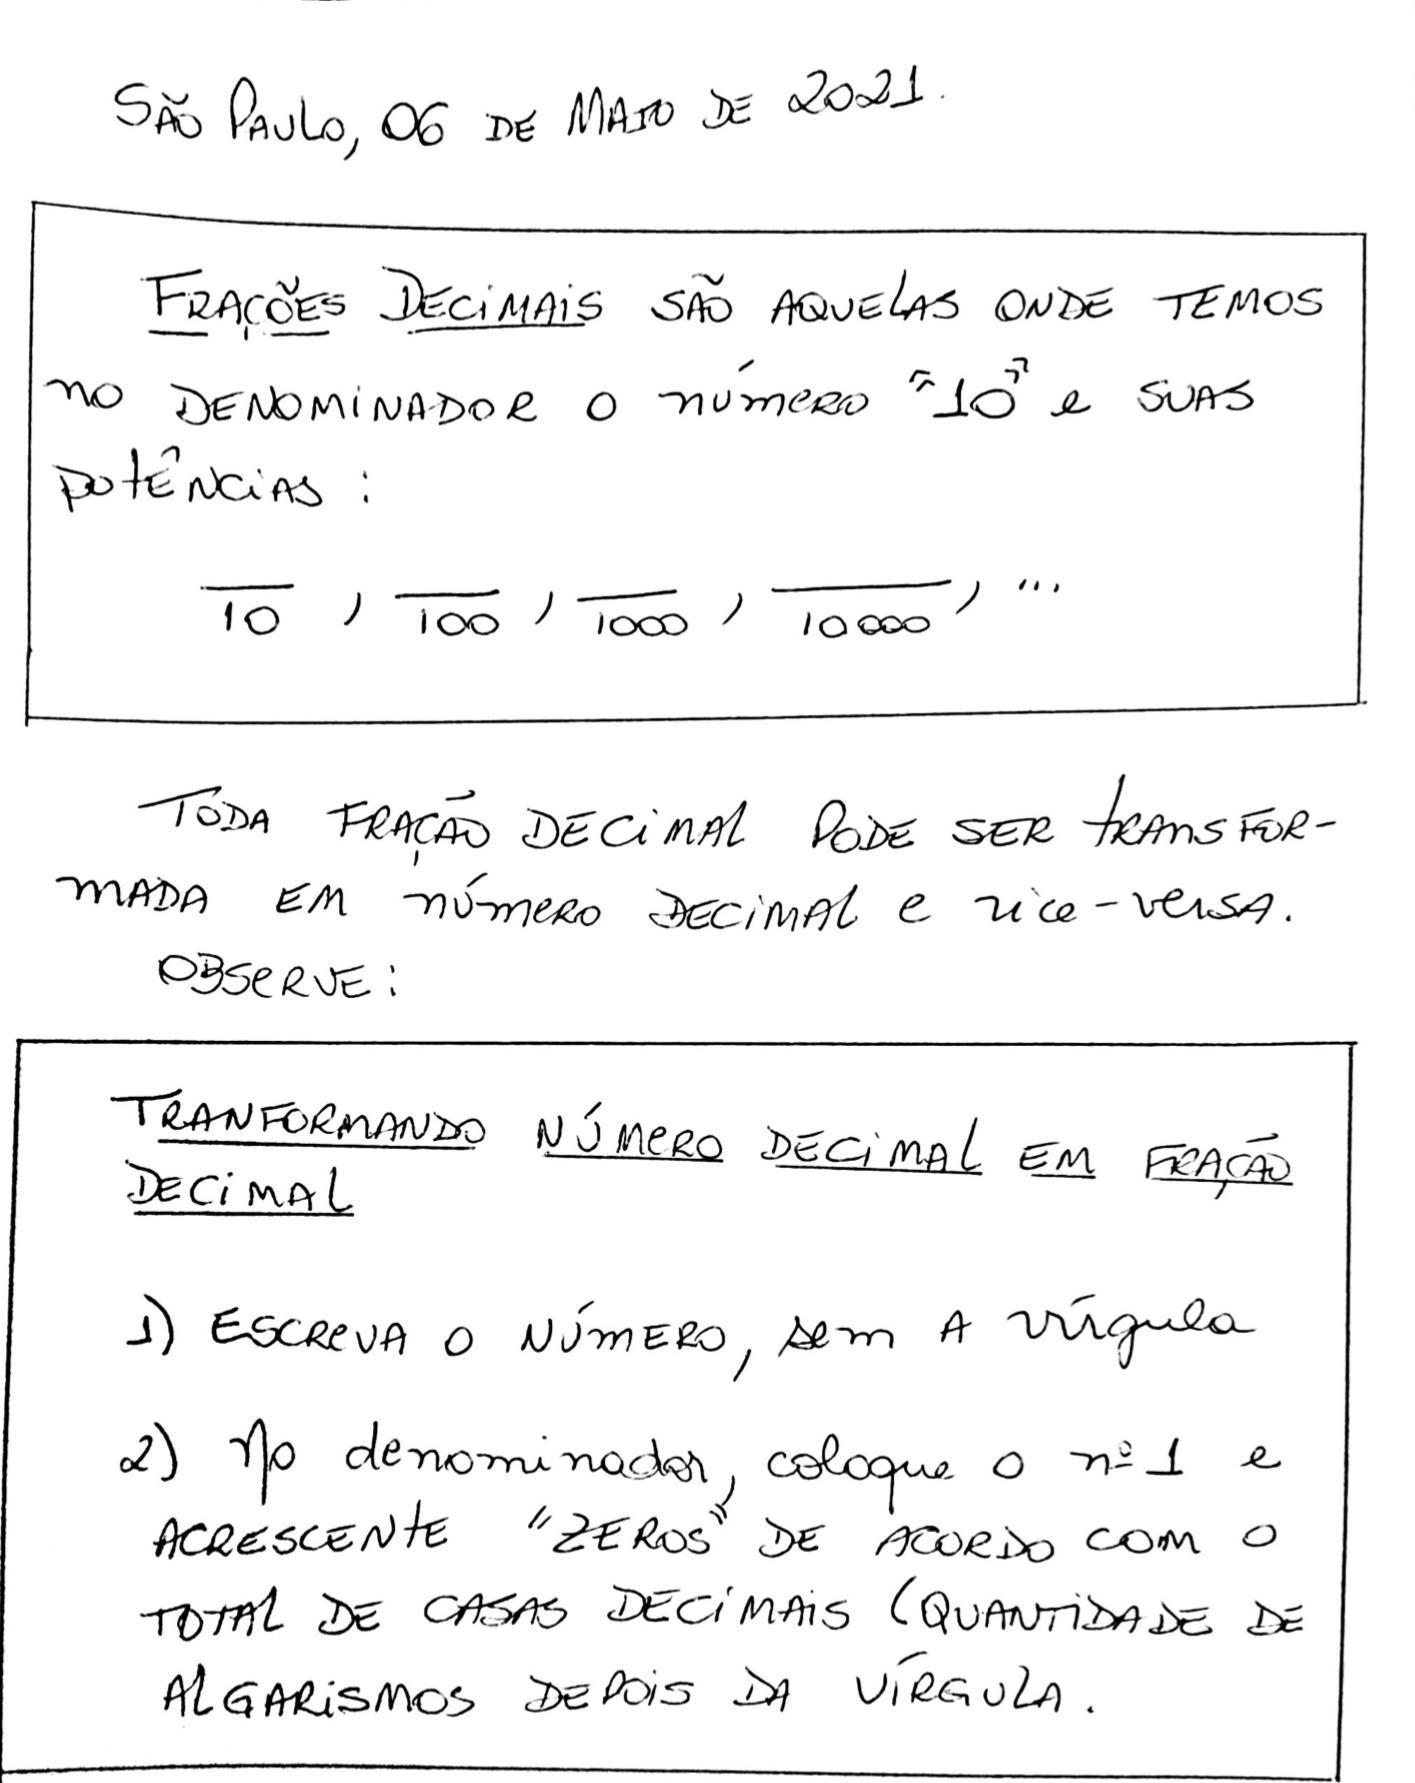 SÃO PAULO, 06 DE MAIO DE 2021.
FRAÇÕES DECIMAIS SÃO AQUELAS ONDE TEMOS
NO DENOMINADOR O NÚMERO "10" E SUAS
POTÊNCIAS :
/10 , /100 , /1000 , /10000 , ...
TODA FRAÇÃO DECIMAL PODE SER TRANSFOR-
MADA EM NÚMERO DECIMAL E VICE-VERSA.
OBSERVE:
TRANFORMANDO NÚMERO DECIMAL EM FRAÇÃO
DECIMAL
1) ESCREVA O NÚMERO, sem A vírgula
2) No denominador, coloque o nº 1 e
ACRESCENTE "ZEROS" DE ACORDO COM O
TOTAL DE CASAS DECIMAIS (QUANTIDADE DE
ALGARISMOS DEPOIS DA VÍRGULA.